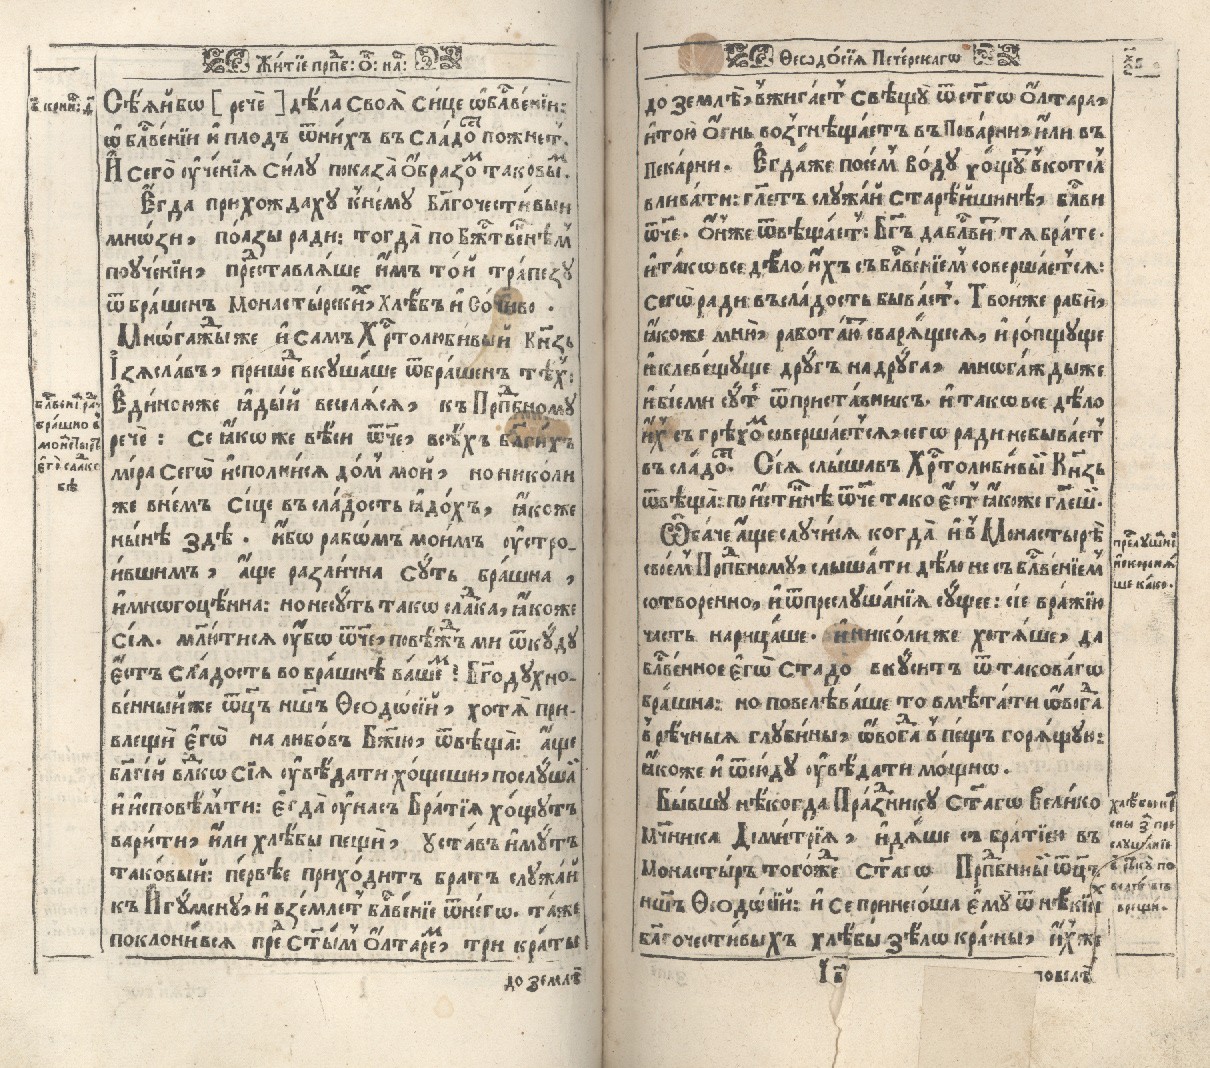 Житїе прпб: ѻ҃: на҃:
в҃ кори: д҃
Сѣѧй бо [ рече ] дѣла своѧ сице ѡ блвенїи:
ѡ блвенїи и плодъ ѿ нихъ въ сладо пожнет.
И сегѡ оученїѧ силу показа ѻбразо таковы.
Егда прихождаху к нему благочестивыи
мнѡзи, ползы ради: тогда по Бжтвенѣм
поученїи, преставлѧше имъ той трапезу
ѿ брашенъ монастырски, хлѣбъ и сочиво .
Мнѡгажды же и самъ Хртолюбивый Кнзь
Їзѧславъ, прише вкушаше ѿ брашенъ тѣх:
Единою же ꙗдый веселѧсѧ, къ Прпбному
рече : се ꙗко же вѣси ѿче, всѣхъ блгихъ
мїра сегѡ исполнисѧ дом мой, но николи
же внем сице въ сладость ꙗдохъ, ꙗкоже
нынѣ здѣ . ибо рабѡмъ моимъ оустро-
ившимъ, аще различна суть брашна ,
и многоцѣнна: но не суть такѡ слака, ꙗкоже
сїѧ. млютисѧ оубѡ ѿче, повѣждъ ми ѿкуду
есть сладость во брашнѣ ваше ? Бгодухно-
венный же ѿцъ ншъ Ѳеодѡсїй, хотѧ при-
влещи егѡ на любовъ Бжїю, ѿвѣща: аще
блгїй влко сїѧ оувѣдати хощеши, послуша
и исповѣм ти: егда оу насъ Братїѧ хощутъ
варити, или хлѣбы пещи, уставъ имутъ
таковый: первѣе приходитъ братъ служай
къ Игумену, и вземлет блвенїе ѿ негѡ. таже
поклонивсѧ пре стым ѻлтаре, три краты
до землѣ
блвенї ра
брашно в
мон҃стыр
егѡ слако
бѣ
Ѳеодосїѧ Печерскагѡ
до землѣ, ужигает свѣщу ѿ стгѡ ѻлтара,
и тою ѻгнь возгнѣщаетъ в Поварни, или въ
Пекарни. Егда же поем воду хощу в котел
вливати: глетъ служай старѣйшинѣ, блви
ѿче. ѻн же ѿвѣщает: Бгъ да блвит тѧ брате.
и такѡ все дѣло ихъ съ блвенїем совершаетсѧ:
сегѡ ради въ сладость бывает. Твои же раби,
ꙗкоже мню, работаю сварѧщесѧ, и ропщуще
и клевещуще другъ на друга, мнѡгажды же
и бїеми сут ѿ приставникъ. и такѡ все дѣло
их съ грѣхо совершаетсѧ, сегѡ ради не бывает
въ сладо. Сїѧ слышавъ Хртолюбивый Кнзь
ѿвѣща: по истиннѣ ѿче тако ест ꙗкоже глеш.
Ѻбаче аще случисѧ когда и в Монастырѣ
своем Прпбному, слышати дѣло не съ блвенїем
сотворенно, и ѿ преслушанїѧ сущее: сїе вражїю
часть нарицаше. и николи же хотѧше, да
блвенное егѡ стадо вкусит ѿ таковагѡ
брашна: но повелѣваше то вметати ѡвога
в рѣчныѧ глубины, ѡвога в пещъ горѧщую:
ꙗкоже и ѿсюду оувѣдати мощно.
Бывшу нѣкогда Празнику стагѡ Велико
Мчника Димитрїѧ, идѧше съ братїею въ
Монастыръ тогоже стагѡ Прпбный ѿцъ
ншъ Ѳеодѡсїй: и се принесоша ему ѿ нѣкїи
благочестивыхъ хлѣбы зѣлѡ красны, ихже
Їв҃
повелѣ
преслушно
и скоромѧ
ше како.